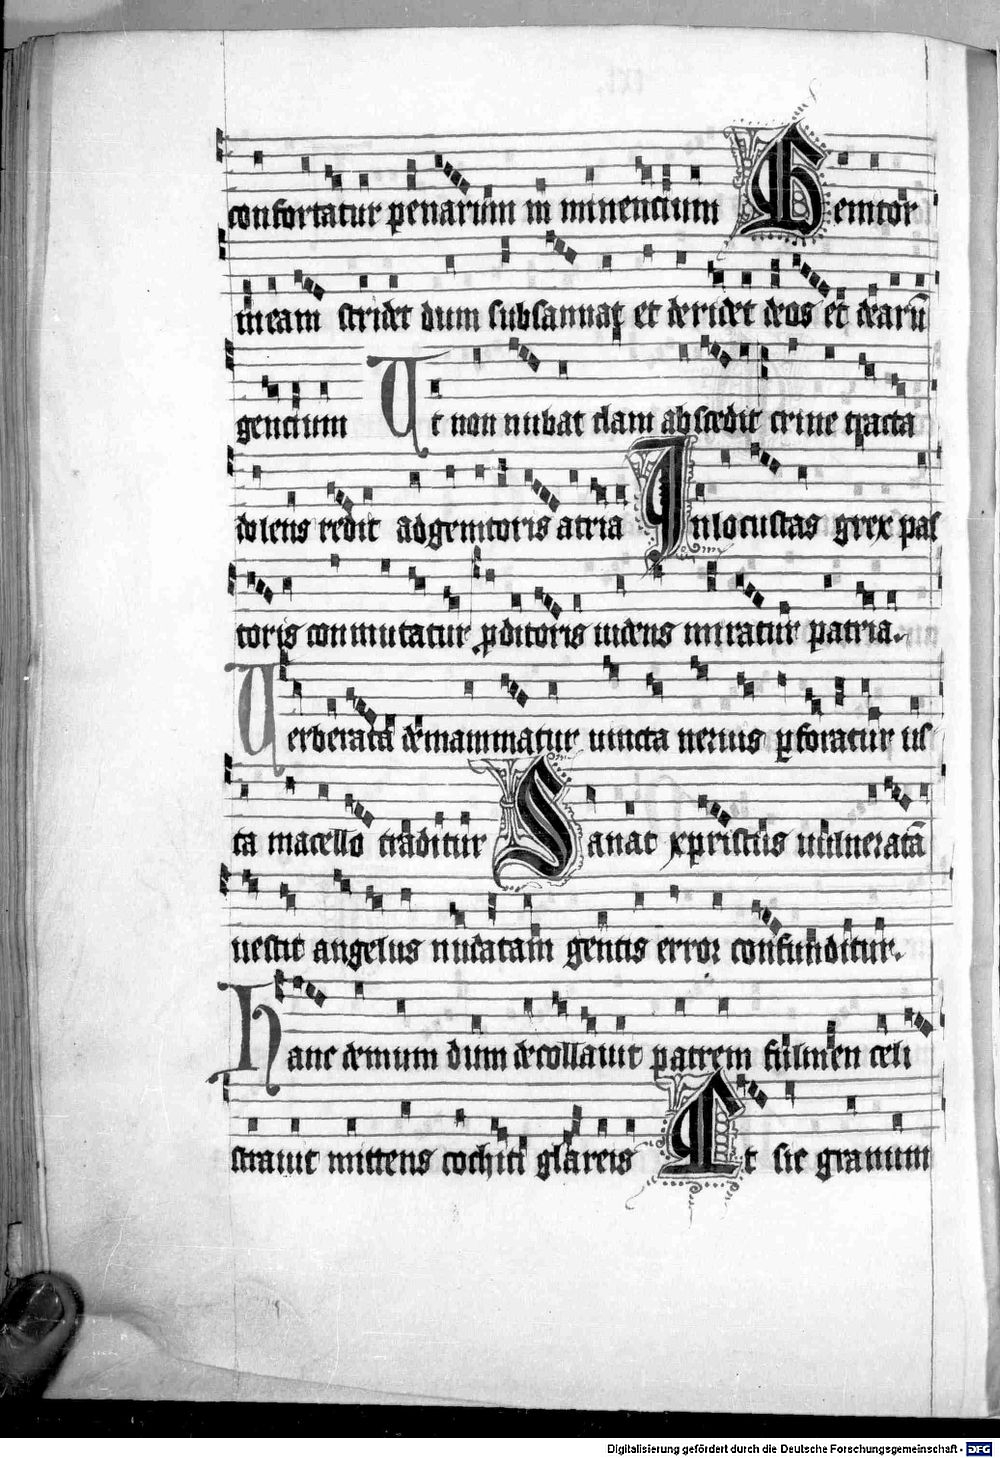 confortatur penarum in minencium Genitor
meam stridet dum subsannat et deridet deos et dearū
gencium Ut non nubat clam abscedit crine tracta
dolens redit ad genitoris atria In locustas grex pas
toris conmutatur ꝑditoris uidens miratur patria.
Uerberata demammatur uincta neruis ꝑforatur us
ta macello traditur Sanat xpristus uulneratā
uestit angelus nudatam gentis error confunditur.
Hanc demum dum decollauit patrem fulmen celi
strauit mittens cochiti glareis Et sic granum
Digitalisierung gefördert durch die Deutsche Forschungsgemeinschaft - DFG